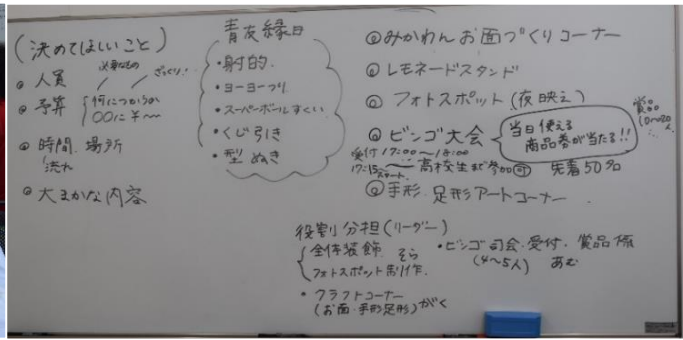 (決めてほしいこと)
◎人員
必要なもの
ざっくり!
◎予算
何につかうか
〇〇に¥〜
◎時間.場所
流れ
◎大まかな内容
青友縁日
・射的.
・ヨーヨーつり.
・スーパーボールすくい
・くじ引き
・型ぬき
◎みかわんお面づくりコーナー
◎レモネードスタンド
◎フォトスポット(夜映え)
◎ビンゴ大会
当日使える
商品券が当たる!!
賞品
受付17:00〜18:00
17:15スタート
高校生まで参加可 先着50名
◎手形.足形アートコーナー
役割分担(リーダー)
全体装飾 そら
フォトスポット制作.
・クラフトコーナー
(お面・手形足形)がく
・ビンゴ司会・受付・賞品係
(4〜5人) あむ